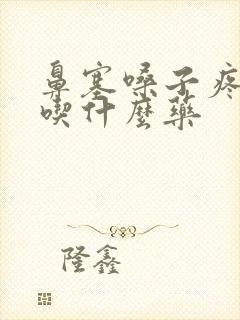 鼻塞嗓子疼
喫什麼藥
隆鑫